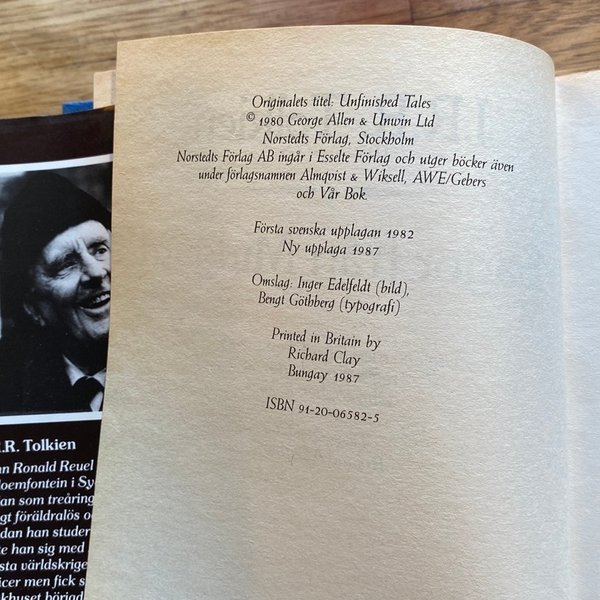 Originalets titel: Unfinished Tales
© 1980 George Allen & Unwin Ltd
Norstedts Förlag, Stockholm
Norstedts Förlag AB ingår i Esselte Förlag och utger böcker även
under förlagsnamnen Almqvist & Wiksell, AWE/Gebers
och Vår Bok.
Första svenska upplagan 1982
Ny upplaga 1987
Omslag: Inger Edelfeldt (bild),
Bengt Göthberg (typografi)
Printed in Britain by
Richard Clay
Bungay 1987
ISBN 91-20-06582-5
.R. Tolkien
nn Ronald Reuel
loemfontein i Sy
dan som treåring
igt föräldralös o
dan han studer
te han sig med
sta världskrige
icer men fick s
khuset började